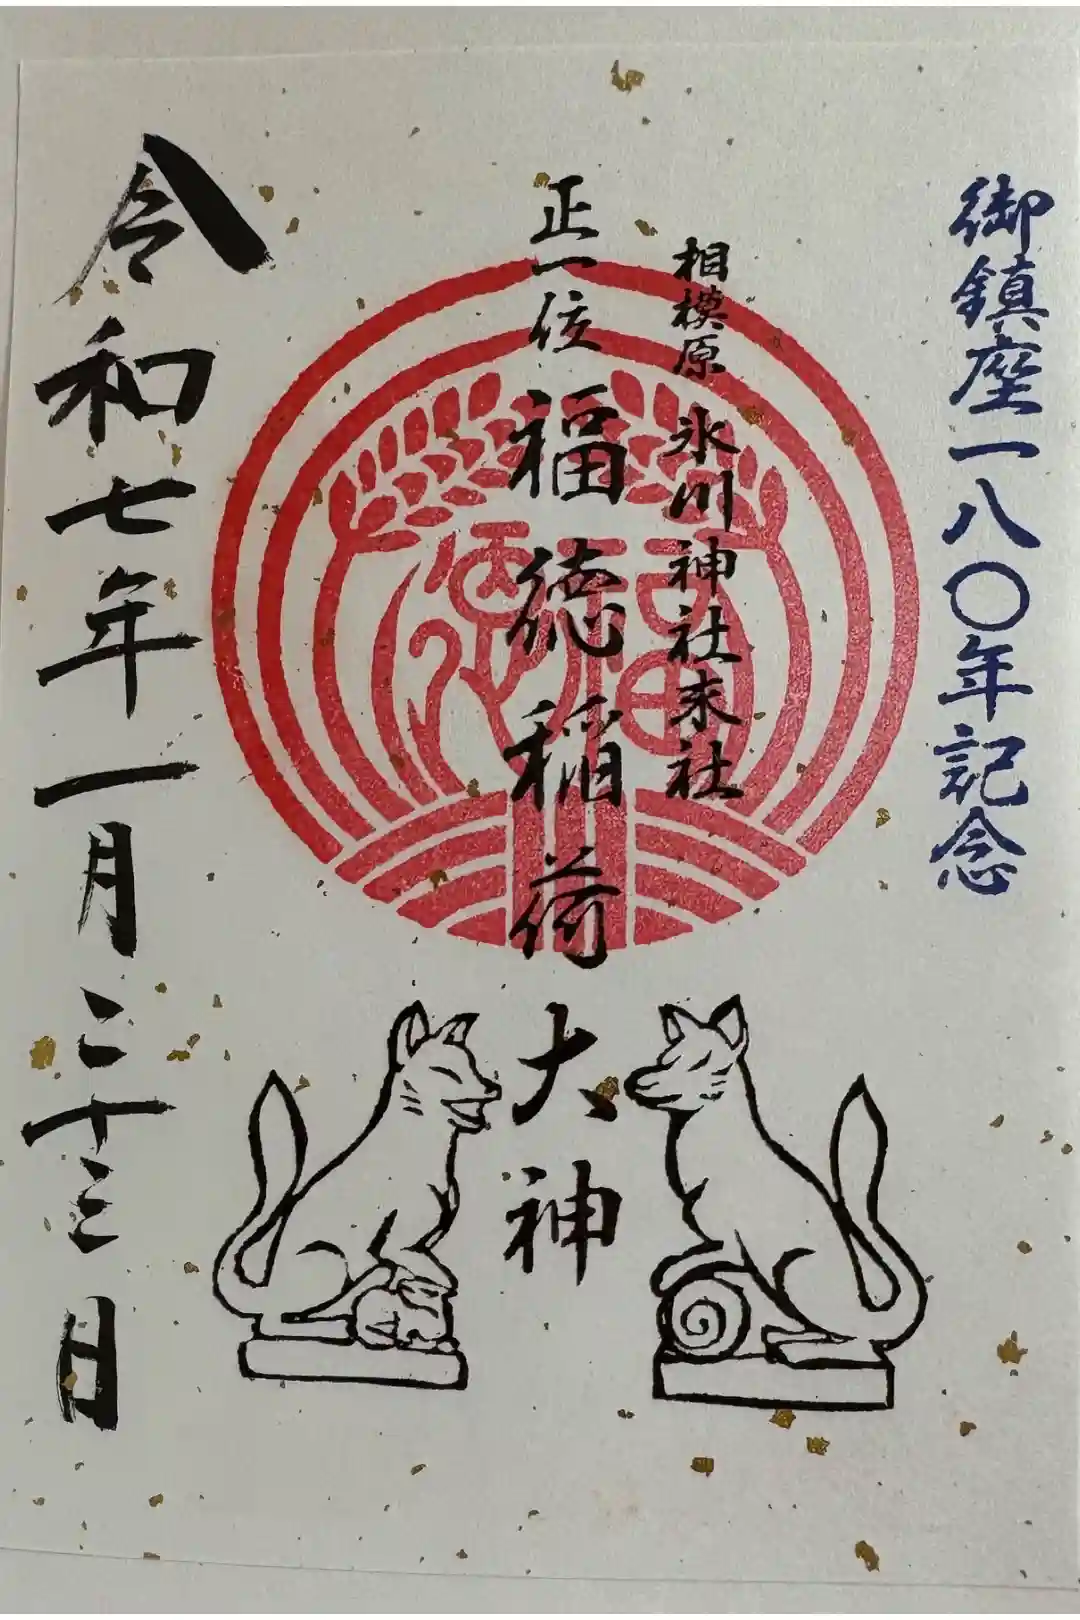 御鎮座一八〇年記念
相模原 氷川神社末社
正一位 福徳稲荷大神
令和七年一月二十三日
福徳